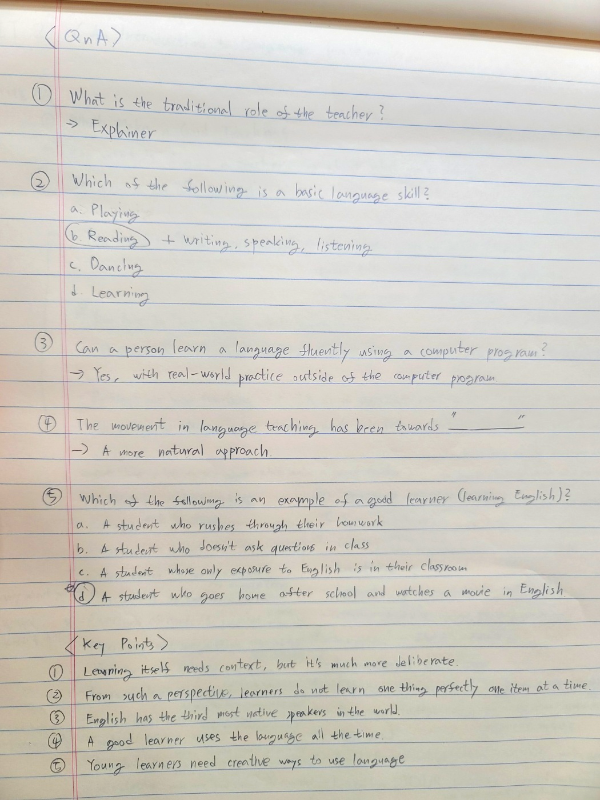 <QnA>
① What is the traditional role of the teacher?
→ Explainer
② Which of the following is a basic language skill?
a. Playing
b. Reading + writing, speaking, listening
c. Dancing
d. Learning
③ Can a person learn a language fluently using a computer program?
→ Yes, with real-world practice outside of the computer program
④ The movement in language teaching has been towards "________"
→ A more natural approach
⑤ Which of the following is an example of a good learner (learning English)?
a. A student who rushes through their homework
b. A student who doesn't ask questions in class
c. A student whose only exposure to English is in their classroom
d A student who goes home after school and watches a movie in English
<Key Points>
① Learning itself needs context, but it's much more deliberate.
② From such a perspective, learners do not learn one thing perfectly one item at a time.
③ English has the third most native speakers in the world.
④ A good learner uses the language all the time.
⑤ Young learners need creative ways to use language